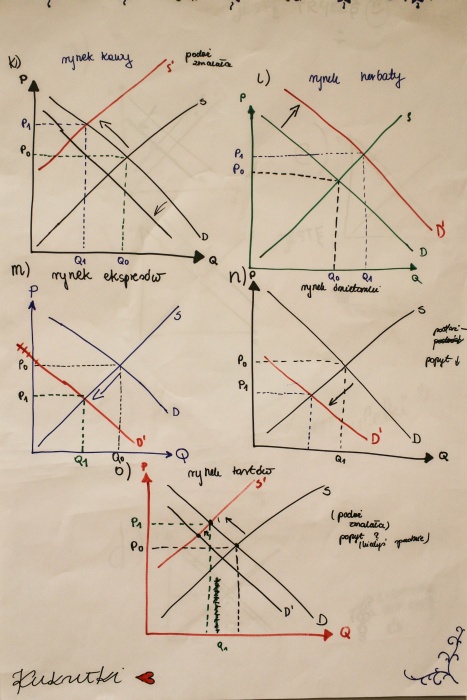 k)
rynek kawy
podaż
zmalała
P
S'
S
P1
P0
Q1
Q0
D
Q
l)
rynek herbaty
P
S
P1
P0
Q0
Q1
D'
D
Q
m)
rynek ekspresów
P
S
P0
P1
D
D'
Q1
Q0
Q
n)
rynek śmietanki
P
S
popyt ↓
P0
P1
D'
D
Q1
Q
o)
rynek tostów
P
S'
S
P1
P0
(podaż
zmalała)
popyt ?
D'
D
Q1
Q
Kukrutki